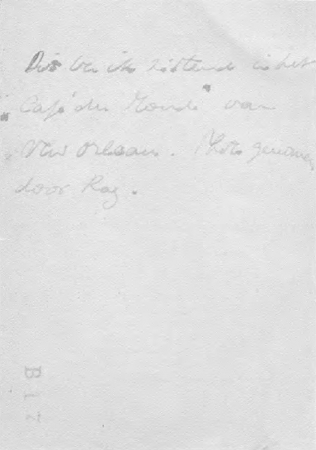 Dit ben ik zittend in het
"Café du Monde" van
New Orleans. Photo genomen
door Ray.
B 1 7